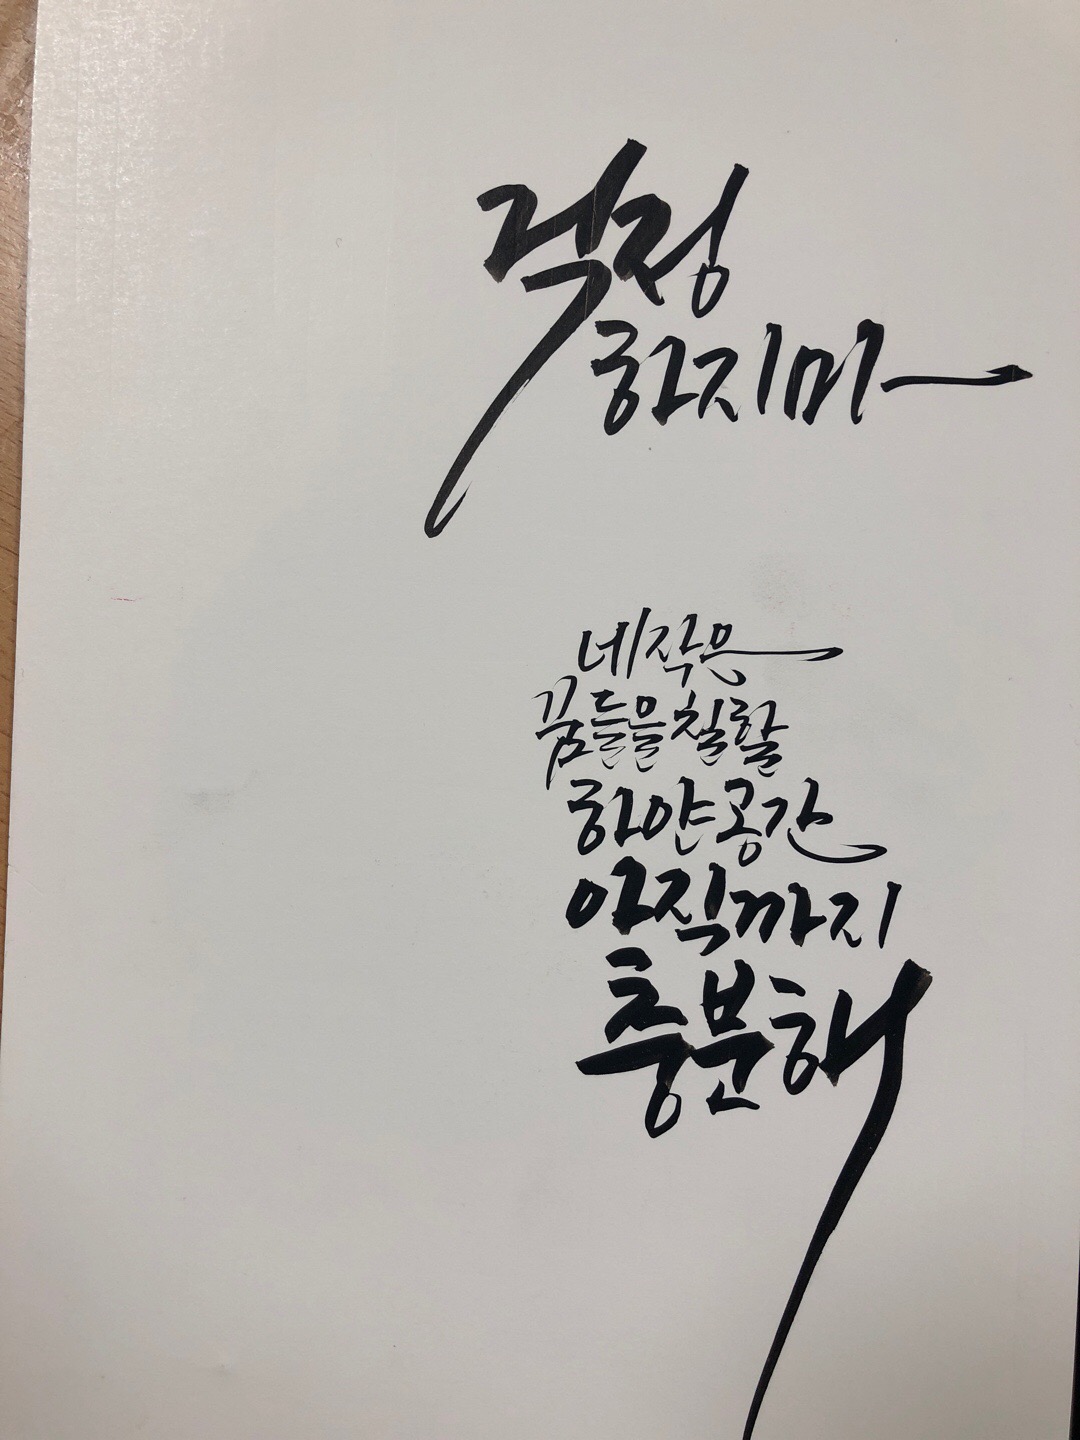 걱정
하지마
네 작은
꿈들을 칠할
하얀 공간
아직까지
충분해